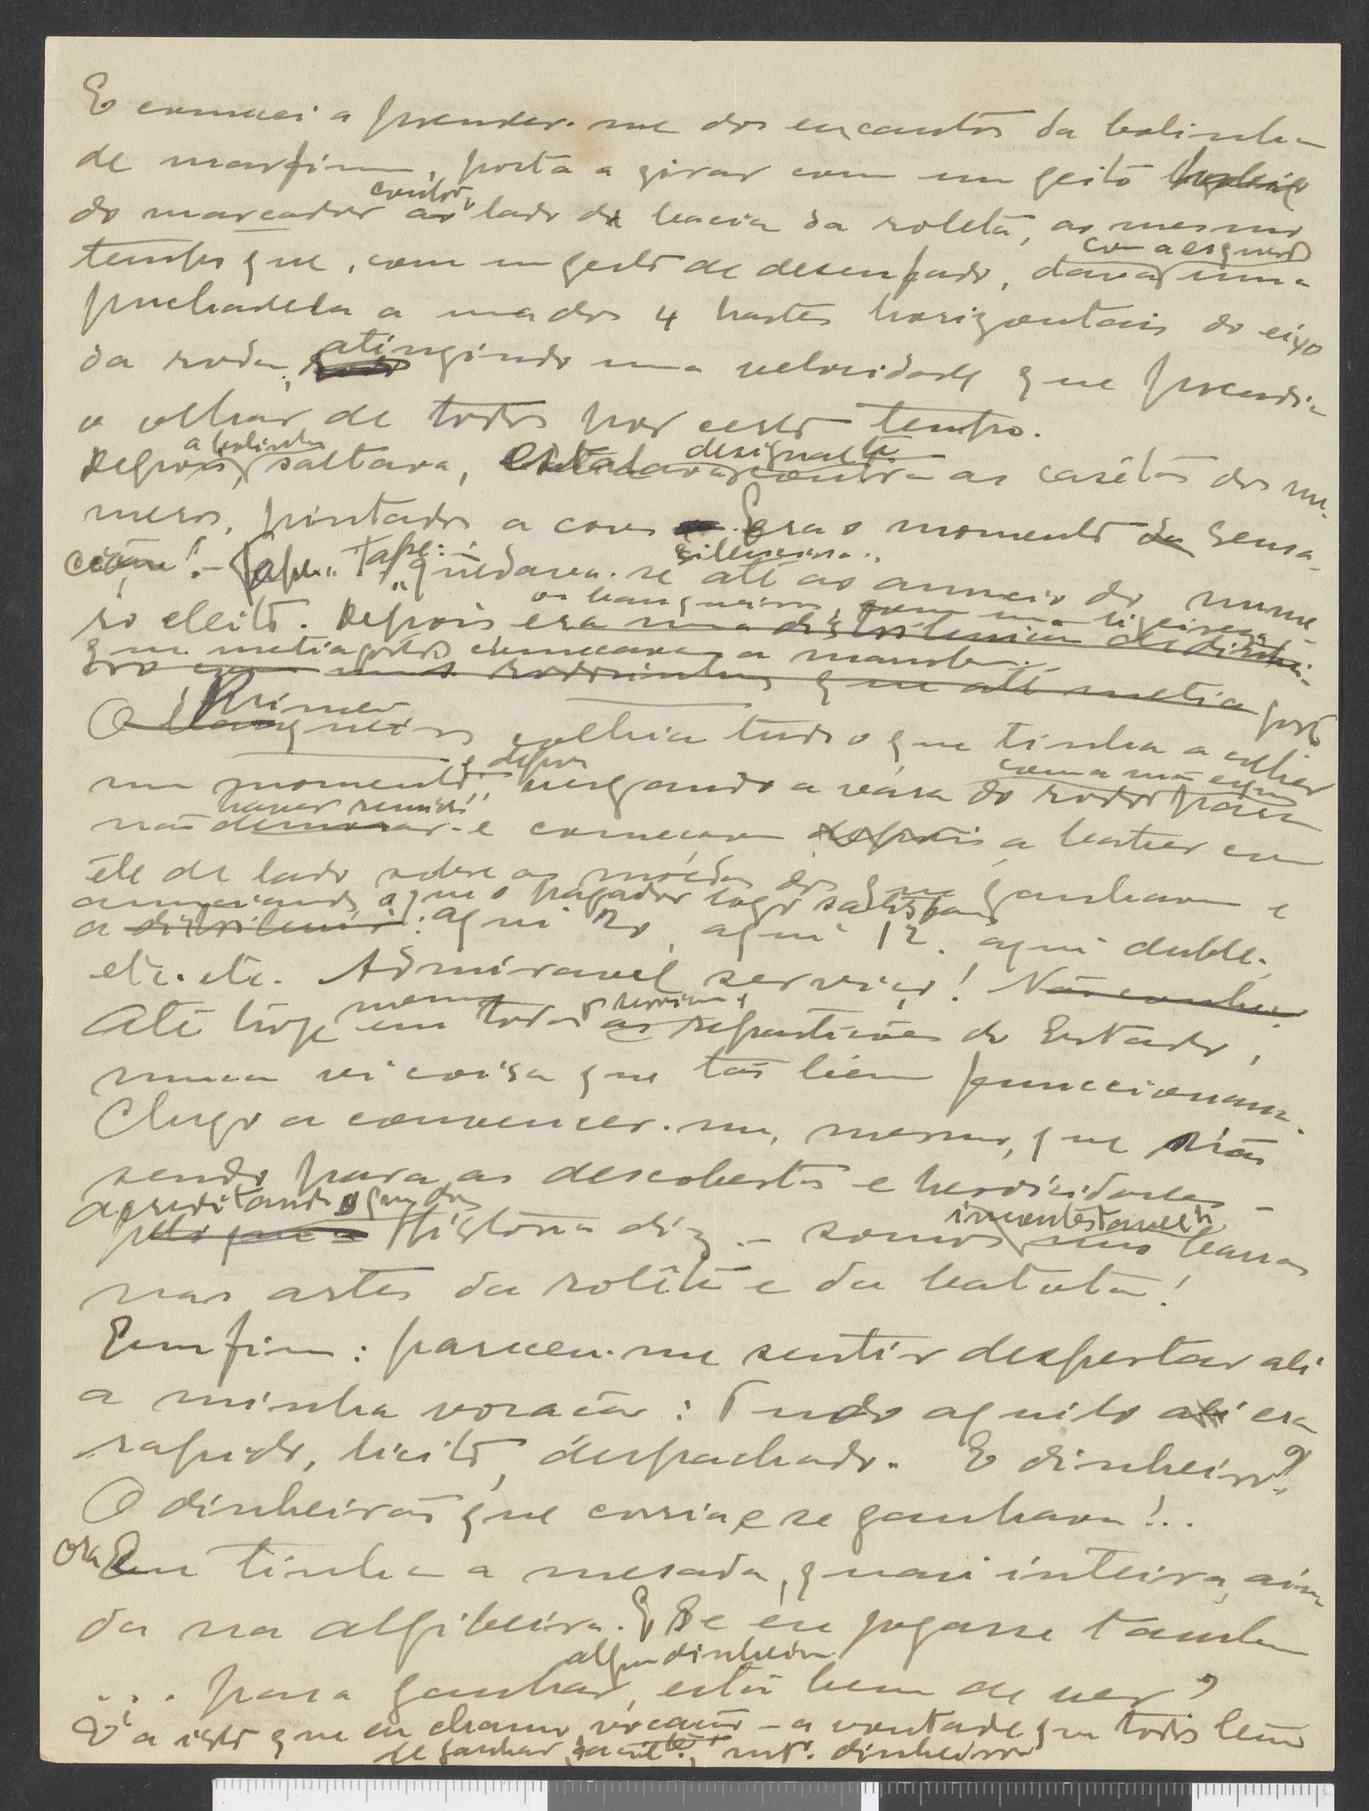 E comecei a prender-me dos encantos da bolinha
de marfim, posta a girar com um geito
do marcador contra o lado da bacia da roleta, ao mesmo
tempo que, com um gesto de desenfado, dava com a esquerda uma
puchadela a uma das 4 hastes horizontais do eixo
da roda, atingindo uma velocidade que prendia
o olhar de todos por certo tempo.
Depois a bolinha saltava, contra as casêtas dos nu-
meros, pintados a cores. Era o momento da sensa-
ção! - Tape.. Tape.. quedava-se até ao anuncio do nume-
ro eleito. Depois os banqueiros,
que metia gosto começavam a manobra.
Primeiro colhia tudo o que tinha a colher
num momento, e depois vergando a vára do rodo com a mão esquerda para
não haver demora e começava a bater com
êle de lado sobre as moédas dos que ganhavam e
anunciando o que o pagador logo satisfazia: aqui 20, aqui 12. aqui duble,
etc. etc. Admiravel serviço! Não conheço
Até hoje mesmo em todos os serviços das repartições do Estado,
nunca vi coisa que tão bem funccionasse.
Chego a convencer-me, mesmo, que não
sendo para as descobertas e heroicidades -
acreditando o que da História diz - somos incontestavelmente
nas artes da rolêta e da batota!
Emfim: pareceu-me sentir despertar ali
a minha vocação: Tudo aquilo ali era
rapido, licito, despachado. E dinheiro?!
O dinheirão que corria e se ganhava!..
Ora Eu tinha a mesada, quasi inteira, ain-
da na algibeira. E Se eu jogasse tambem
... para ganhar algum dinheiro, está bem de ver?
E' a isto que eu chamo vocação - a vontade que todos teem
de ganhar, facilmte., mto. dinheiro